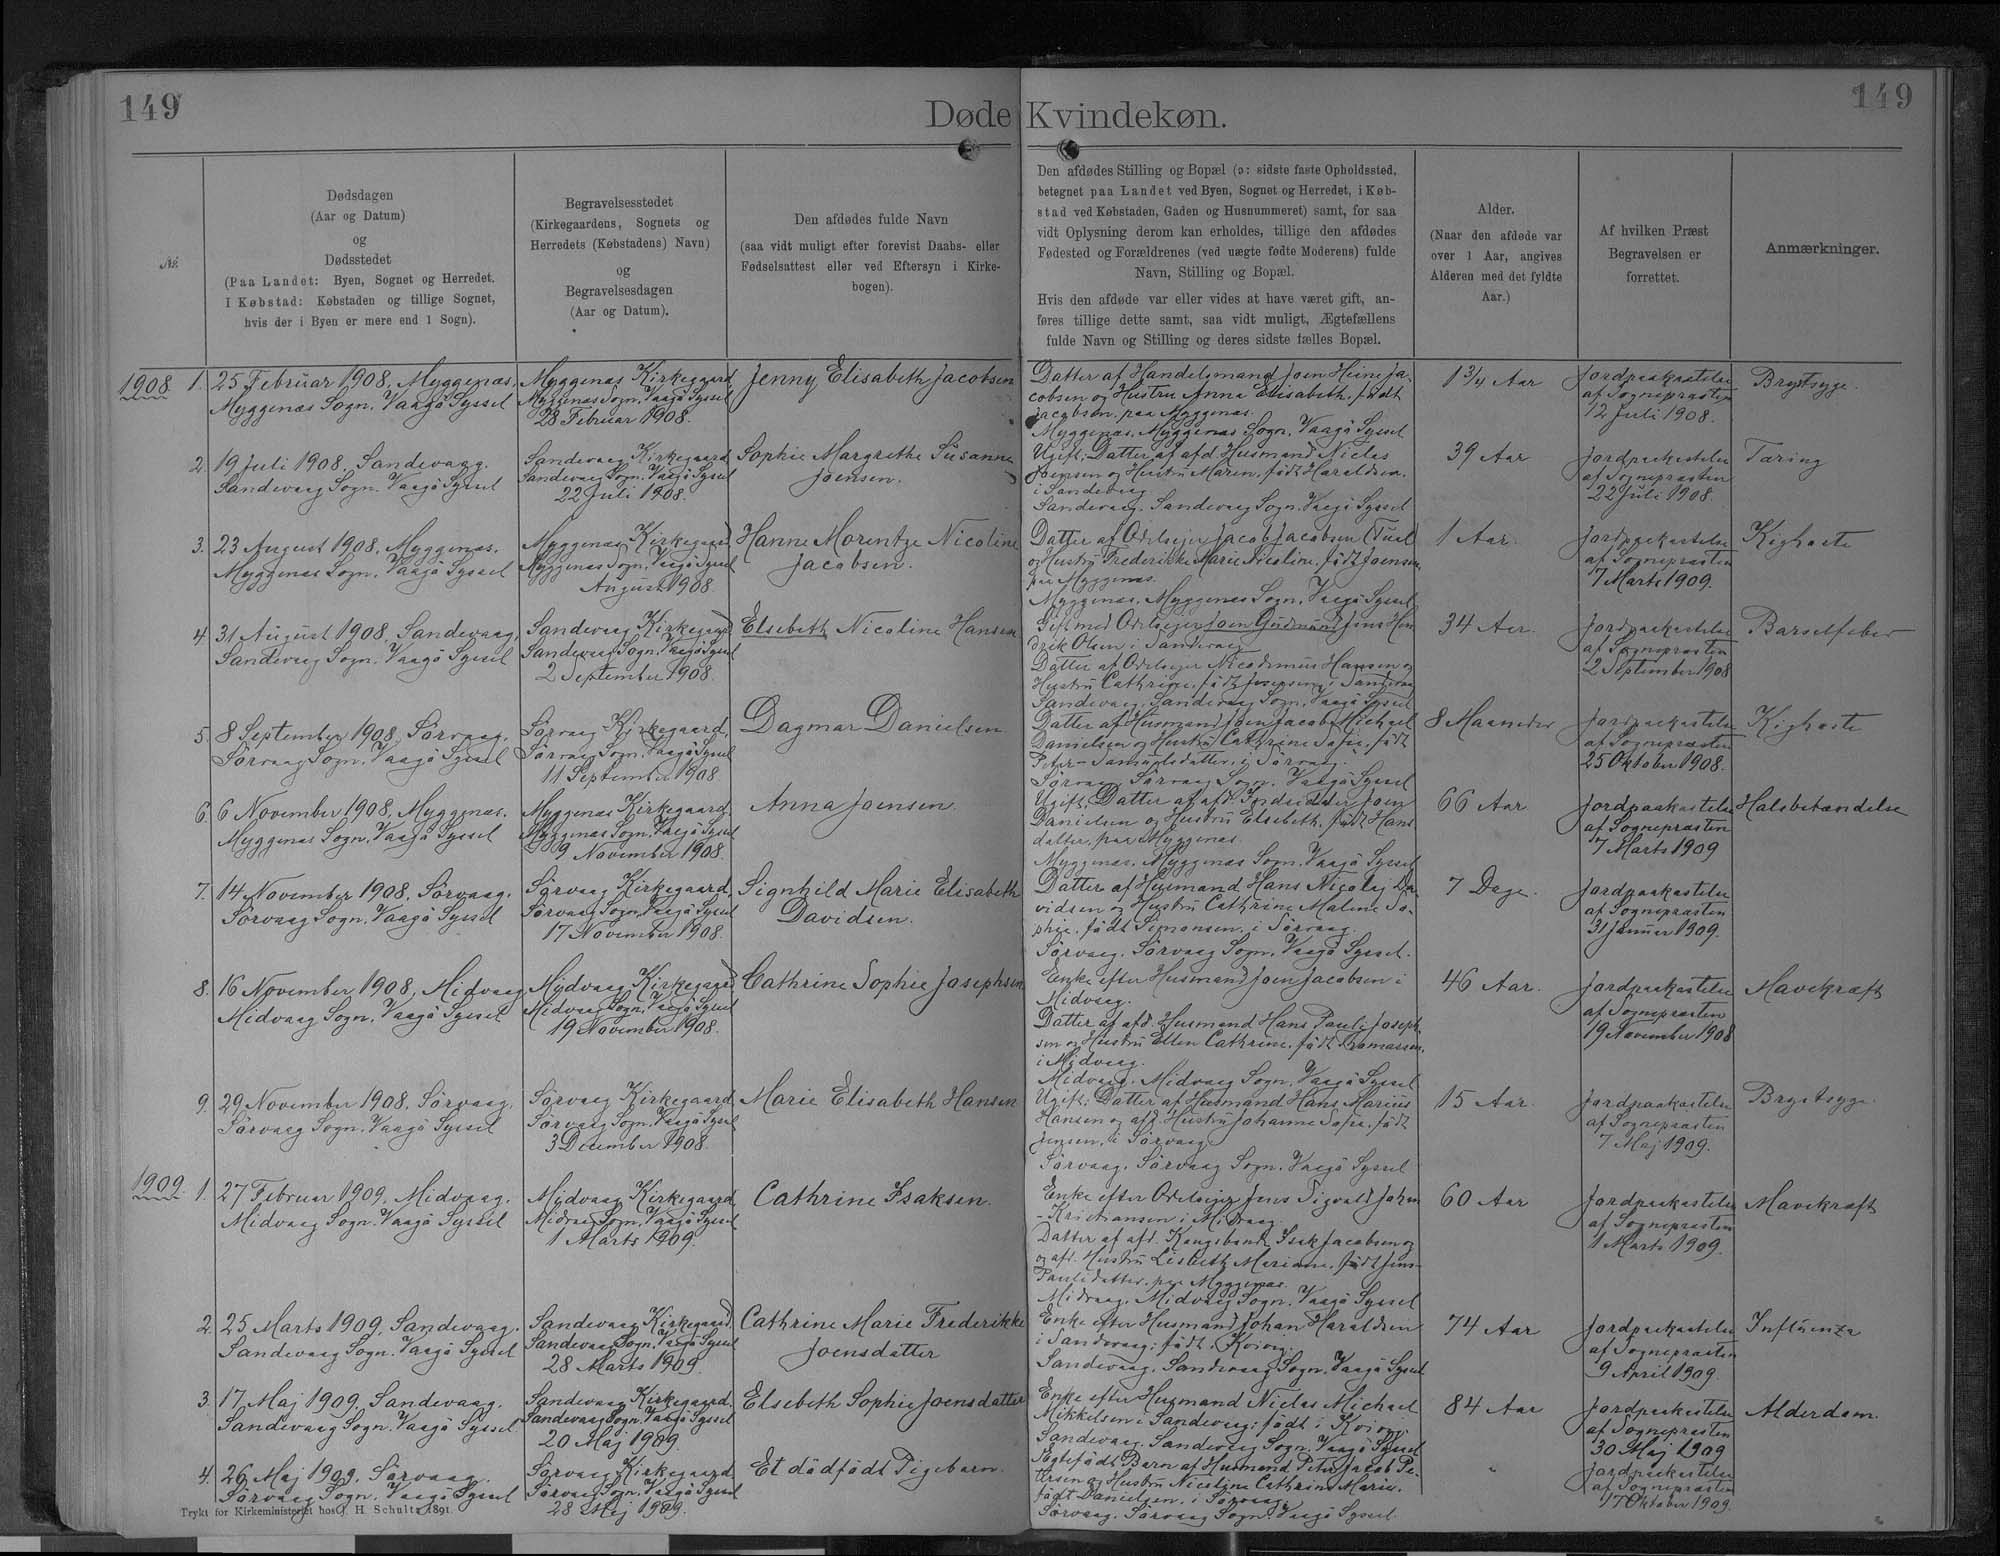 149
Døde Kvindekøn.
149
№
Dødsdagen
(Aar og Datum)
og
Dødsstedet
(Paa Landet: Byen, Sognet og Herredet.
I Købstad: Købstaden og tillige Sognet,
hvis der i Byen er mere end 1 Sogn).
Begravelsesstedet
(Kirkegaardens, Sognets og
Herredets (Købstadens) Navn)
og
Begravelsesdagen
(Aar og Datum).
Den afdødes fulde Navn
(saa vidt muligt efter forevist Daabs- eller
Fødselsattest eller ved Eftersyn i Kirke-
bogen).
Den afdødes Stilling og Bopæl (ɔ: sidste faste Opholdssted,
betegnet paa Landet ved Byen, Sognet og Herredet, i Køb-
stad ved Købstaden, Gaden og Husnummeret) samt, for saa
vidt Oplysning derom kan erholdes, tillige den afdødes
Fødested og Forældrenes (ved uægte fødte Moderens) fulde
Navn, Stilling og Bopæl.
Hvis den afdøde var eller vides at have været gift, an-
føres tillige dette samt, saa vidt muligt, Ægtefællens
fulde Navn og Stilling og deres sidste fælles Bopæl.
Alder.
(Naar den afdøde var
over 1 Aar, angives
Alderen med det fyldte
Aar.)
Af hvilken Præst
Begravelsen er
forrettet.
Anmærkninger.
1908 1. 25 Februar 1908, Myggenæs,
Myggenæs Sogn, Vaagö Syssel
Myggenæs Kirkegaard
Myggenæs Sogn, Vaagö Syssel
28 Februar 1908.
Jenny Elisabeth Jacobsen
Datter af Handelsmand Joen Heine Ja-
cobsen og Hustru Anna Elisabeth, födt
Jacobsen, paa Myggenæs.
Myggenæs, Myggenæs Sogn, Vaagö Syssel
1 3/4 Aar
Jordpaakastelse
af Sognepræsten
12 Juli 1908.
Brystsyge.
2. 19 Juli 1908. Sandevaag.
Sandevaag Sogn. Vaagö Syssel
Sandevaag Kirkegaard
Sandevaag Sogn. Vaagö Syssel
22 Juli 1908.
Sophie Margrethe Susanne
Joensen.
Ugift; Datter af afd. Husmand Niclas
Joensen og Hustru Maren, födt Haraldsen.
i Sandevaag.
Sandevaag. Sandevaag Sogn. Vaagö Syssel
39 Aar
Jordpaakastelse
af Sognepræsten
22 Juli 1908.
Tæring
3. 23 August 1908, Myggenæs.
Myggenæs Sogn, Vaagö Syssel
Myggenæs Kirkegaard
Myggenæs Sogn, Vaagö Syssel
August 1908.
Hanne Morentze Nicoline
Jacobsen.
Datter af Odelsejer Jacob Jacobsen
og Hustru Frederikke Marie Nicoline, födt Joensen
paa Myggenæs.
Myggenæs, Myggenæs Sogn, Vaagö Syssel
1 Aar.
Jordpaakastelse
af Sognepræsten
7 Marts 1909.
Kighoste
4. 31 August 1908, Sandevaag,
Sandevaag Sogn. Vaagö Syssel
Sandevaag Kirkegaard
Sandevaag Sogn. Vaagö Syssel
2 September 1908.
Elsebeth Nicoline Hansen
Gift med Odelsejer Joen Gudmund Jens Hen
drik Olsen i Sandevaag
Datter af Odelsejer Nicodemus Hansen og
Hustru Cathrine, födt Josepsen, i Sandevaag
Sandevaag, Sandevaag Sogn, Vaagö Syssel
34 Aar.
Jordpaakastelse
af Sognepræsten
2 September 1908
Barselfeber
5. 8 September 1908, Sörvaag,
Sörvaag Sogn, Vaagö Syssel
Sörvaag Kirkegaard,
Sörvaag Sogn, Vaagö Syssel
11 September 1908
Dagmar Danielsen
Datter af Husmand Joen Jacob Michael
Danielsen og Hustru Cathrine Sofie, födt
Peter-Samuelsdatter, i Sörvaag.
Sörvaag, Sörvaag Sogn, Vaagö Syssel
8 Maaneder
Jordpaakastelse
af Sognepræsten
25 Oktober 1908.
Kighoste
6. 6 November 1908, Myggenæs.
Myggenæs Sogn, Vaagö Syssel
Myggenæs Kirkegaard.
Myggenæs Sogn, Vaagö Syssel
9 November 1908.
Anna Joensen
Ugift; Datter af afd. Indsidder Joen
Danielsen og Hustru Elsebeth, födt Hans
datter, paa Myggenæs.
Myggenæs, Myggenæs Sogn, Vaagö Syssel
66 Aar
Jordpaakastelse
af Sognepræsten
7 Marts 1909
Halsbetændelse
7. 14 November 1908, Sörvaag.
Sörvaag Sogn, Vaagö Syssel
Sörvaag Kirkegaard.
Sörvaag Sogn, Vaagö Syssel
17 November 1908.
Signhild Marie Elisabeth
Davidsen.
Datter af Husmand Hans Nicolaj Da-
vidsen og Hustru Cathrine Malene So-
phie, födt Simonsen, i Sörvaag.
Sörvaag, Sörvaag Sogn, Vaagö Syssel.
7 Dage.
Jordpaakastelse
af Sognepræsten
31 Januar 1909.
8. 16 November 1908, Midvaag
Midvaag Sogn, Vaagö Syssel
Mydvaag Kirkegaard
Midvaag Sogn, Vaagö Syssel
19 November 1908.
Cathrine Sophie Josephsen
Enke efter Husmand Joen Jacobsen i
Midvaag.
Datter af afd. Husmand Hans Pauli Joseph-
sen og Hustru Ellen Cathrine, födt Thomassen,
i Midvaag.
Midvaag. Midvaag Sogn, Vaagö Syssel
46 Aar.
Jordpaakastelse
af Sognepræsten
19 November 1908
Mavekræft
9. 29 November 1908, Sörvaag.
Sörvaag Sogn, Vaagö Syssel
Sörvaag Kirkegaard
Sörvaag Sogn, Vaagö Syssel
3 December 1908.
Marie Elisabeth Hansen
Ugift; Datter af Husmand Hans Marius
Hansen og afd. Hustru Johanne Sofie, födt
Jensen, i Sörvaag.
Sörvaag, Sörvaag Sogn, Vaagö Syssel
15 Aar.
Jordpaakastelse
af Sognepræsten
7 Maj 1909.
Brystsyge.
1909. 1. 27 Februar 1909, Midvaag.
Midvaag Sogn. Vaagö Syssel
Mydvaag Kirkegaard
Midvaag Sogn, Vaagö Syssel
1 Marts 1909.
Cathrine Isaksen.
Enke efter Odelsejer Jens Sigvald Johan
-Kristiansen i Midvaag
Datter af afd. Kongsbonde Isak Jacobsen og
og afd. Hustru Lisbeth Mariane, födt Jens-
Paulidatter, paa Myggenæs.
Midvaag. Midvaag Sogn. Vaagö Syssel
60 Aar
Jordpaakastelse
af Sognepræsten
1 Marts 1909.
Mavekræft
2. 25 Marts 1909, Sandevaag.
Sandevaag Sogn. Vaagö Syssel
Sandevaag Kirkegaard
Sandevaag Sogn, Vaagö Syssel
28 Marts 1909.
Cathrine Marie Frederikke
Joensdatter
Enke efter Husmand Johan Haraldsen
i Sandevaag; födt i Kvivig.
Sandevaag, Sandevaag Sogn. Vaagö Syssel
74 Aar
Jordpaakastelse
af Sognepræsten
9 April 1909.
Influenza
3. 17 Maj 1909, Sandevaag.
Sandevaag Sogn. Vaagö Syssel.
Sandevaag Kirkegaard.
Sandevaag Sogn, Vaagö Syssel
20 Maj 1909.
Elsebeth Sophie Joensdatter
Enke efter Husmand Niclas Michael
Mikkelsen i Sandevaag; födt i Kvivig.
Sandevaag. Sandevaag Sogn. Vaagö Syssel
84 Aar
Jordpaakastelse
af Sognepræsten
30 Maj 1909
Alderdom.
4. 26 Maj 1909. Sörvaag.
Sörvaag Sogn. Vaagö Syssel
Sörvaag Kirkegaard
Sörvaag Sogn, Vaagö Syssel
28 Maj 1909.
Et dödfödt Pigebarn.
Ægtefödt Barn af Husmand Peter Jacob Pe-
tersen og Hustru Nicoline Cathrine Marie,
födt Danielsen, i Sörvaag.
Sörvaag. Sörvaag Sogn. Vaagö Syssel.
"
Jordpaakastelse
af Sognepræsten
17 Oktober 1909.
Trykt for Kirkeministeriet hos J. H. Schultz 1891.